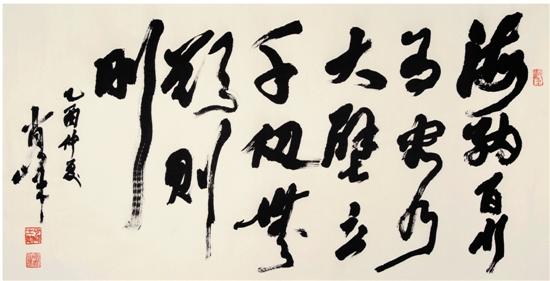 海納百川
有容乃
大壁立
千仞無
欲则
刚
乙酉仲夏